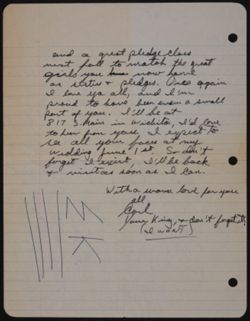 and a great pledge class
next fall to match the great
girls you have now have
as actives & pledges. Once again
I love ya all, and I'm
proud to have been even a small
part of you. I'll be at
817 S. Main in Wichita. I'd love
to hear from you. I expect to
see all your faces at my
wedding June 1st. So don't
forget I exist, I'll be back
to visit as soon as I can.
With a warm love for you
all
King, & don't forget it
(I won't)
MK